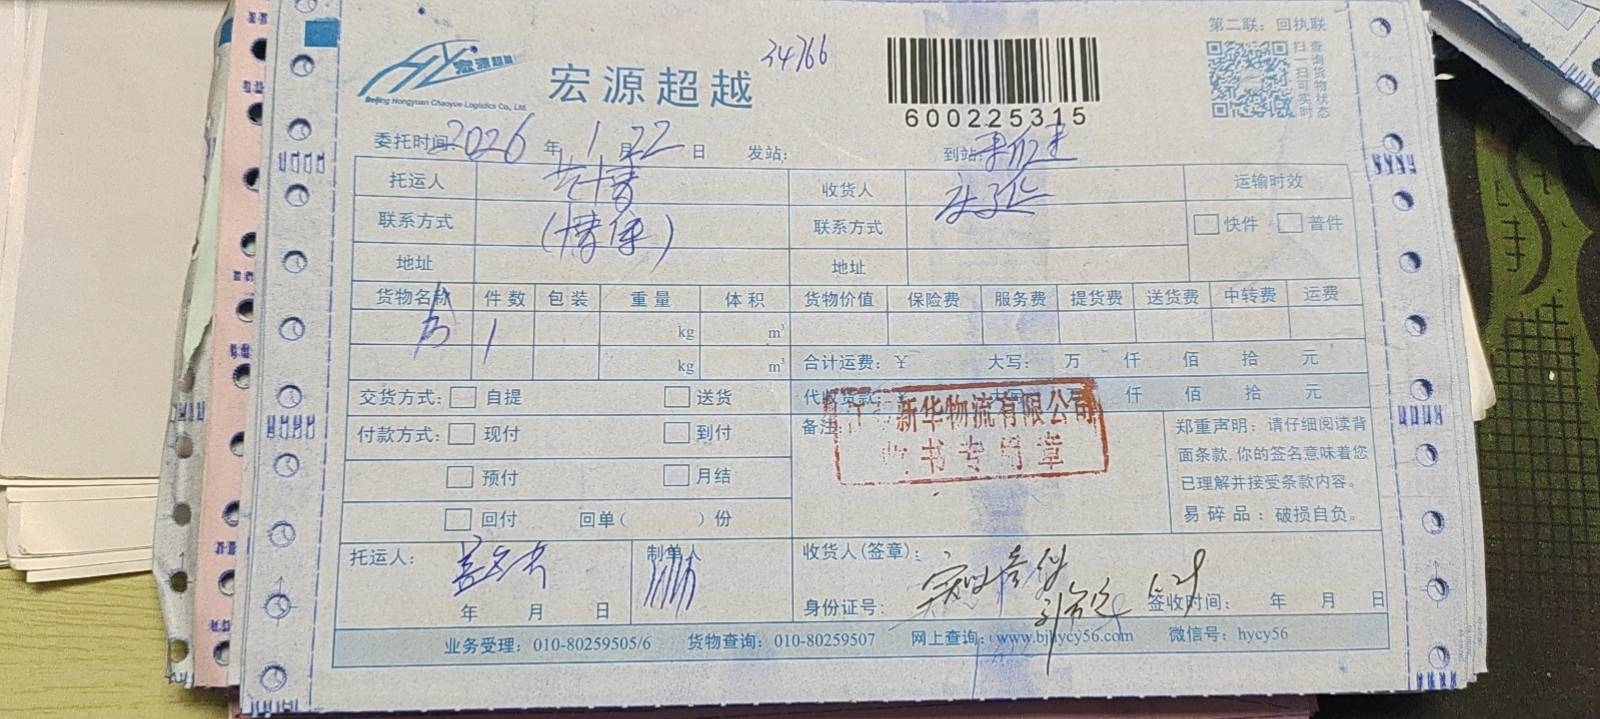 第二联：回执联
扫一扫可实时
查询货物状态
宏源超越
Beijing Hongyuan Chaoyue Logistics Co., Ltd.
宏源超越
34766
600225315
委托时间：2026 年 1 月 22 日 发站： 到站：
托运人 收货人 运输时效
联系方式 联系方式 快件 普件
地址 地址
货物名称 件数 包装 重量 体积 货物价值 保险费 服务费 提货费 送货费 中转费 运费
1 kg m³
kg m³ 合计运费：￥ 大写： 万 仟 佰 拾 元
交货方式： 自提 送货 代收货款：￥ 大写： 万 仟 佰 拾 元
付款方式： 现付 到付 备注：
新华物流有限公司
书专用章
预付 月结
回付 回单（ ）份
郑重声明：请仔细阅读背
面条款，你的签名意味着您
已理解并接受条款内容。
易碎品：破损自负。
托运人： 制单人 收货人(签章)：
年 月 日 身份证号： 签收时间： 年 月 日
1.29
业务受理：010-80259505/6 货物查询：010-80259507 网上查询：www.bjhycy56.com 微信号：hycy56